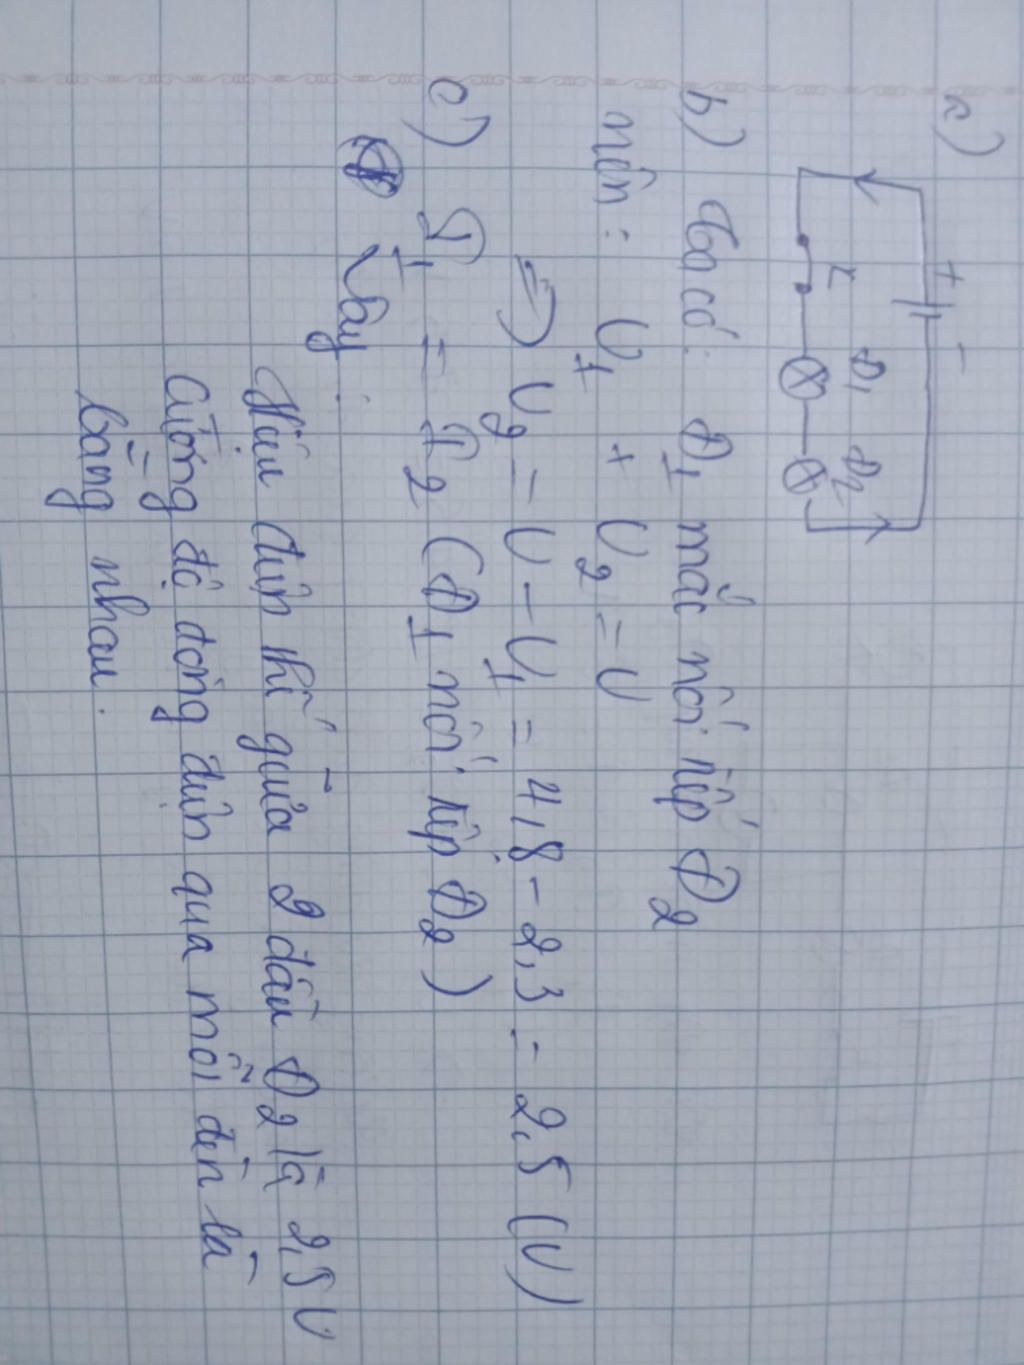 a)
+ -
K Đ1 Đ2
b) Ta có: Đ1 mắc nối tiếp Đ2
nên: U1 + U2 = U
=> U2 = U - U1 = 4,8 - 2,3 = 2,5 (V)
c) I1 = I2 (Đ1 nối tiếp Đ2)
Vậy:
Hiệu điện thế giữa 2 đầu Đ2 là 2,5V
Cường độ dòng điện qua mỗi đèn là
bằng nhau.